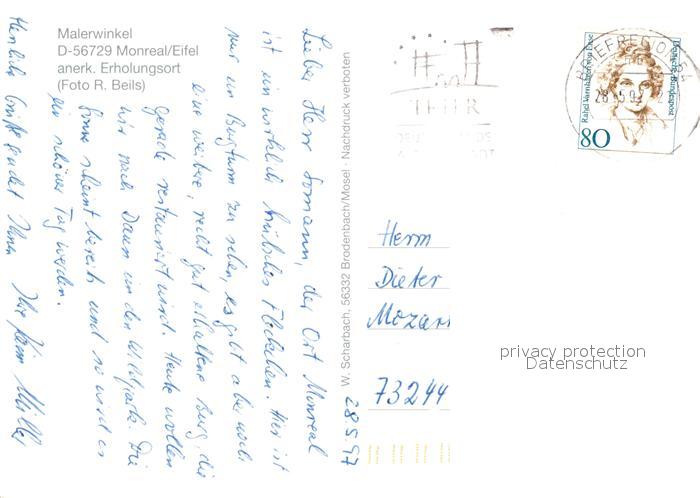 Malerwinkel
D-56729 Monreal/Eifel
anerk. Erholungsort
(Foto R. Beils)
Lieber Herr Somann, der Ort Monreal
ist ein wirklich hübsches Fleckchen. Hier ist
nur ein Burgturm zu sehen, es gibt aber noch
eine weitere, recht gut erhaltene Burg, die
gerade restauriert wird. Heute wollen
wir nach Daun in den Wildpark. Die
Sonne scheint bereits und so wird es
ein schöner Tag werden.
Herzliche Grüße sendet Ihnen Ihre Müller
28.5.97
W. Scharbach, 56332 Brodenbach/Mosel · Nachdruck verboten
TRIER
BRIEFREGION
28.5.97
Rahel Varnhagen von Ense
Deutsche Bundespost
80
Herrn
Dieter
Mozar
73244
privacy protection
Datenschutz